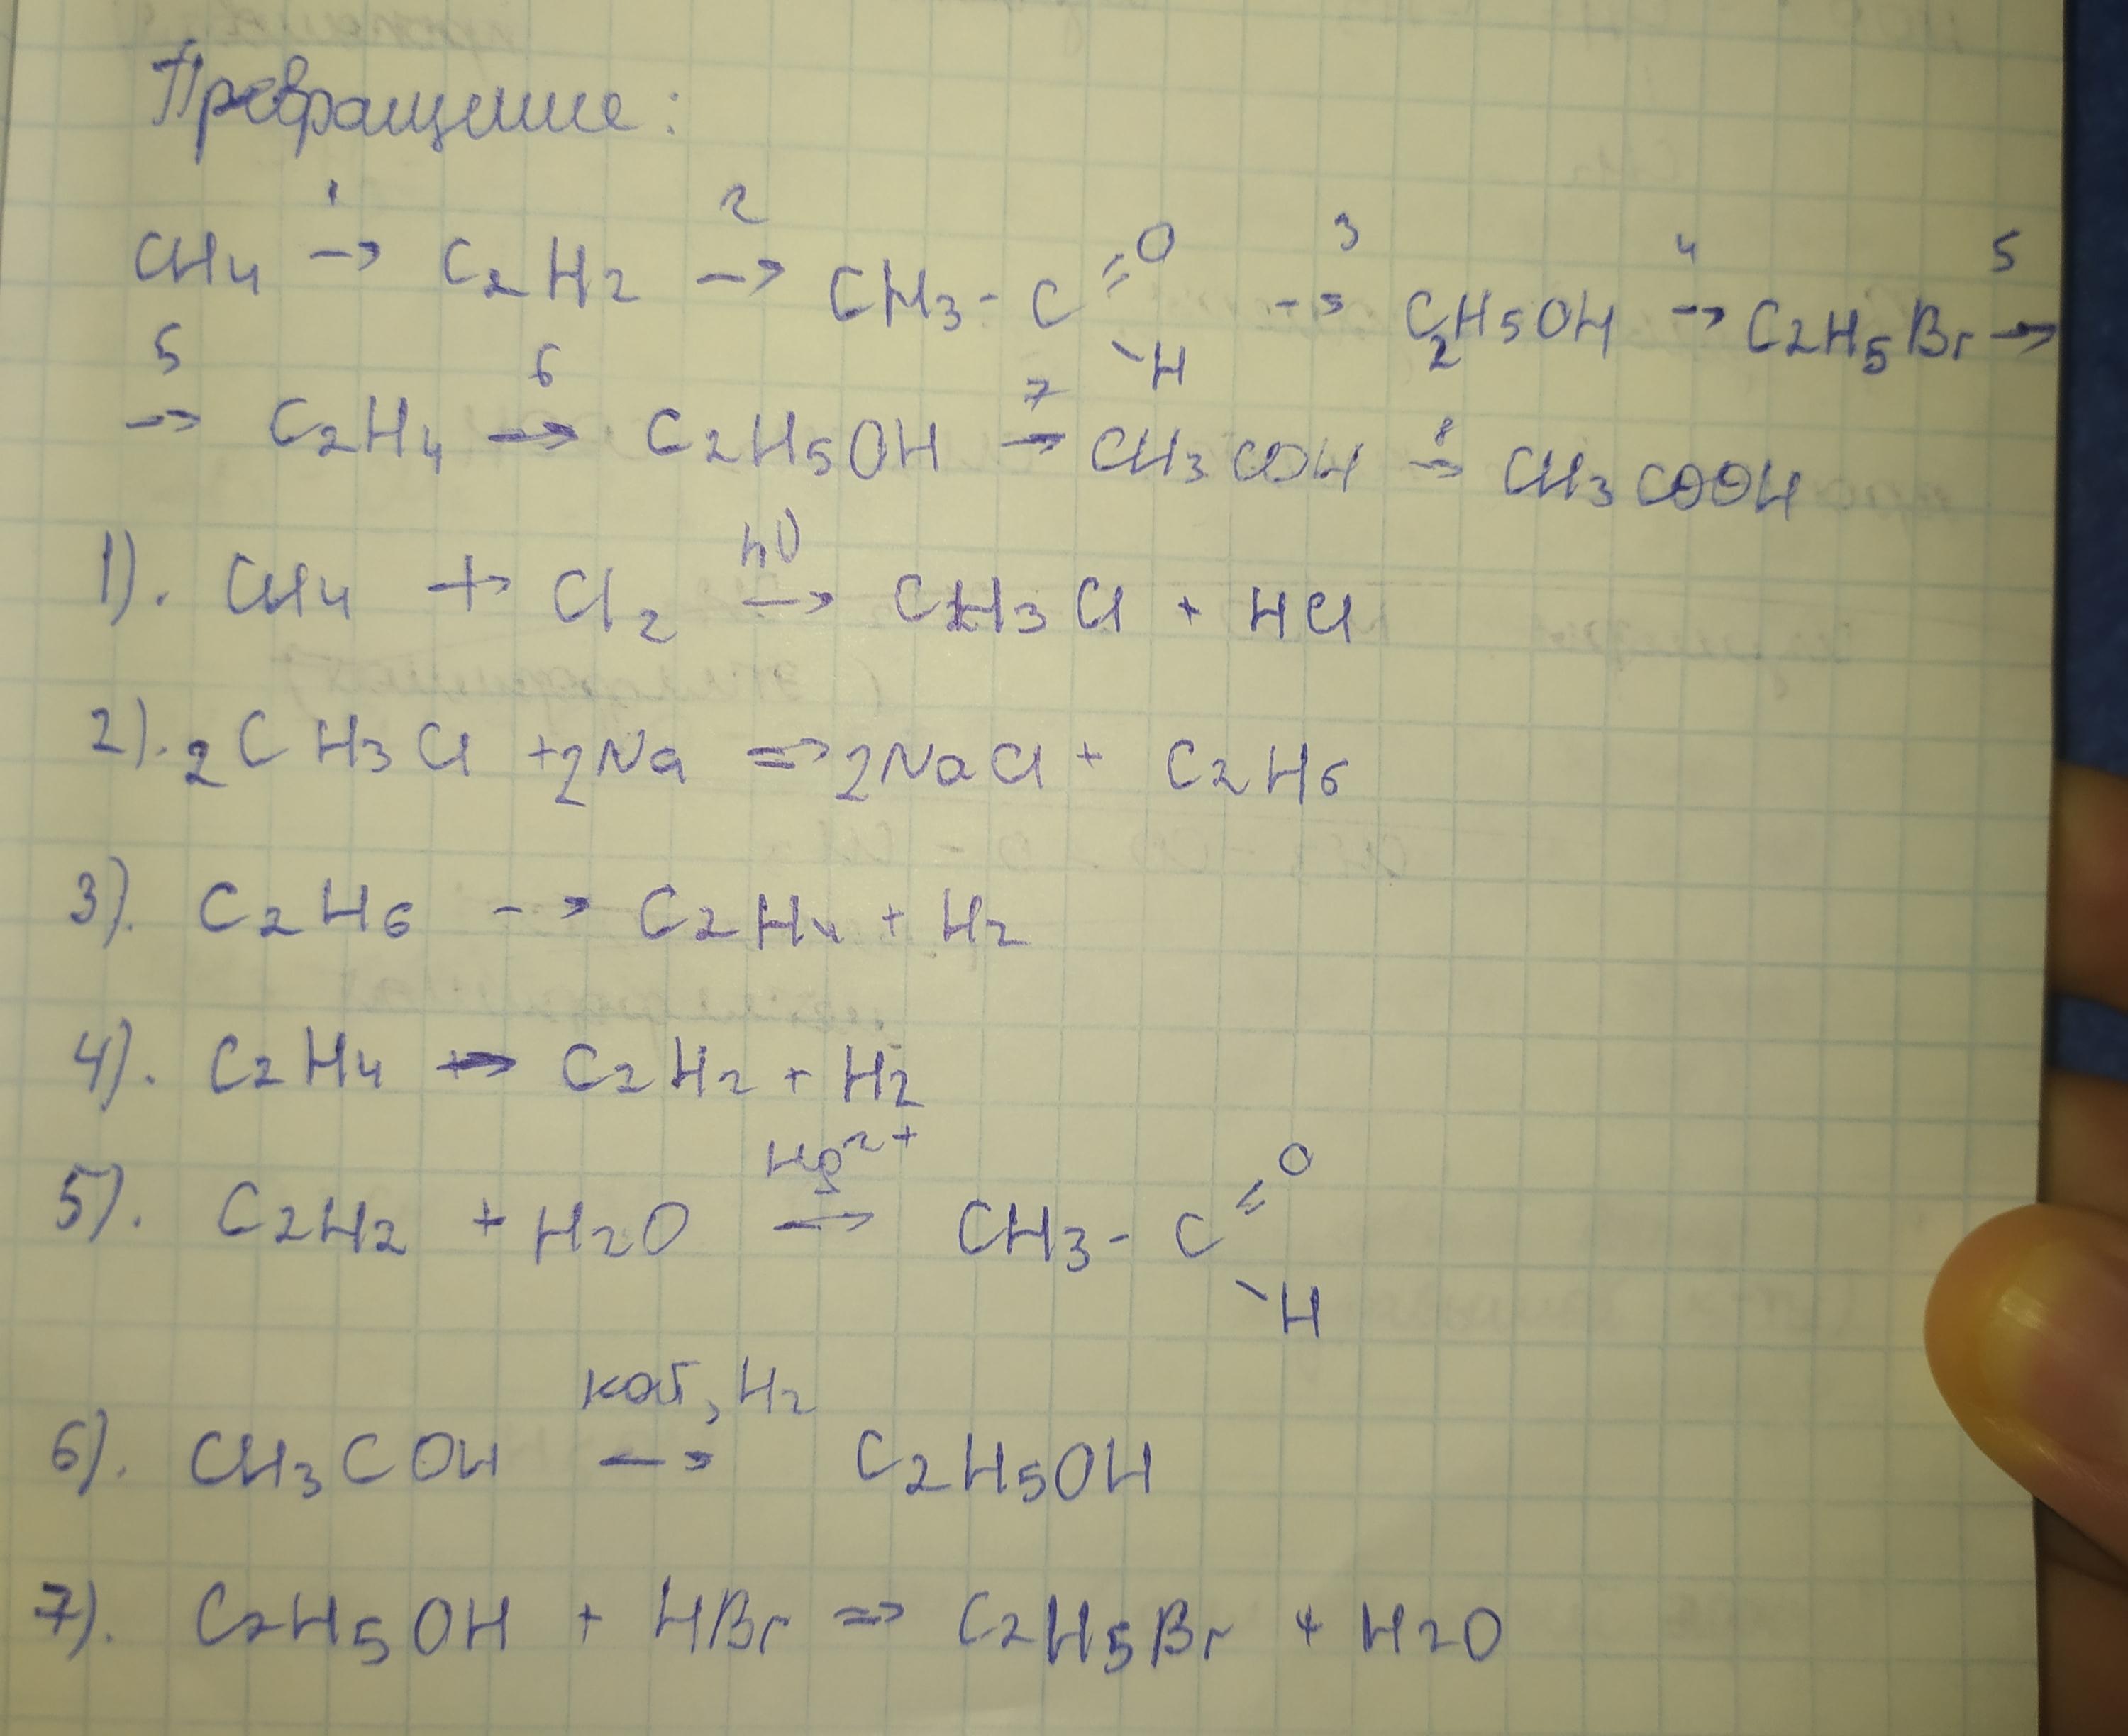 Превращение:
1 2 3 4 5
CH4 → C2H2 → CH3-C=O-H → C2H5OH → C2H5Br →
5 6 7 8
→ C2H4 → C2H5OH → CH3COH → CH3COOH
hν
1). CH4 + Cl2 → CH3Cl + HCl
2). 2CH3Cl + 2Na => 2NaCl + C2H6
3). C2H6 → C2H4 + H2
4). C2H4 → C2H2 + H2
Hg2+
5). C2H2 + H2O → CH3-C=O-H
кат, H2
6). CH3COH → C2H5OH
7). C2H5OH + HBr => C2H5Br + H2O